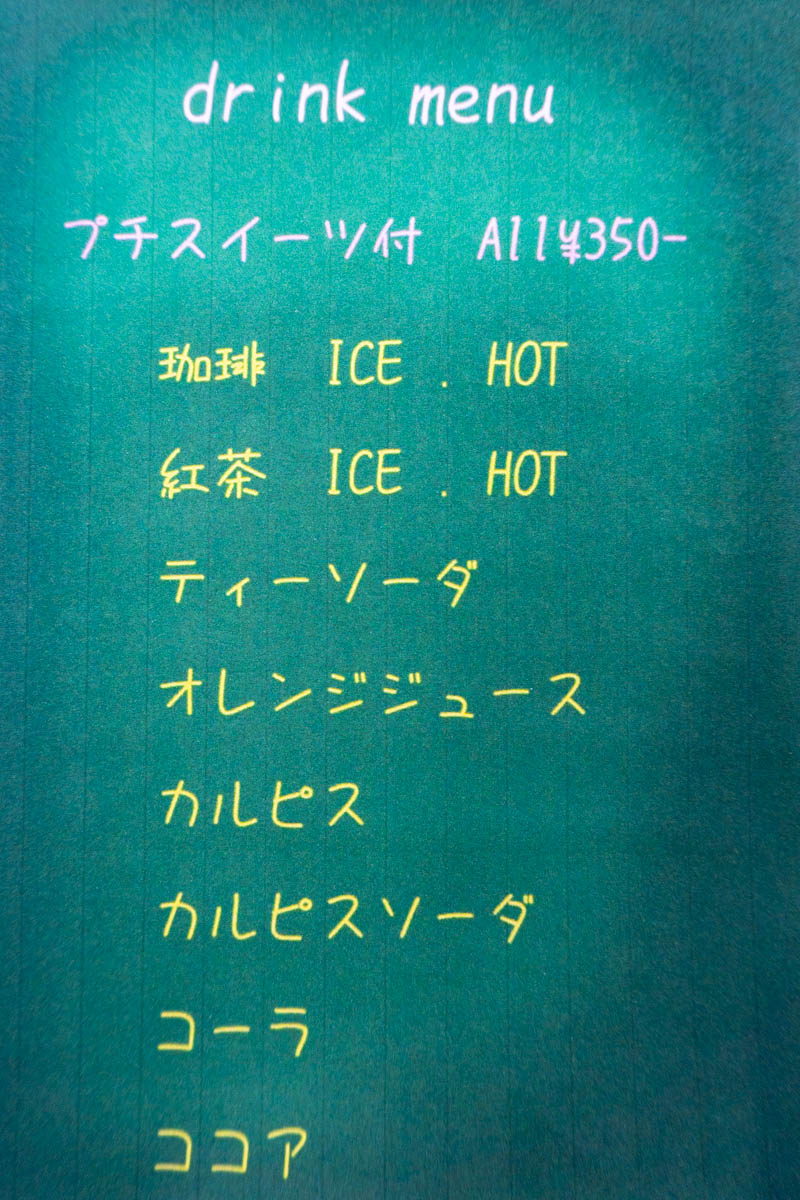 drink menu
プチスイーツ付　All¥350-
珈琲　ICE . HOT
紅茶　ICE . HOT
ティーソーダ
オレンジジュース
カルピス
カルピスソーダ
コーラ
ココア